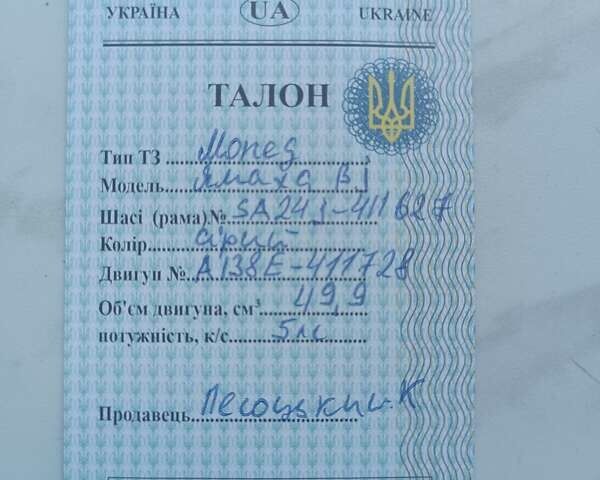 УКРАЇНА UA UKRAINE
ТАЛОН
Тип ТЗ Мопед
Модель Ямаха В1
Шасі (рама)№ SA24J-411627
Колір сірий
Двигун № A138E-411728
Об'єм двигуна, см³ 49,9
потужність, к/с 5лс
Продавець